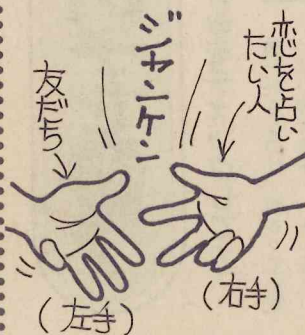 恋を占い
たい人
ジャンケン
友だち
(右手)
(左手)